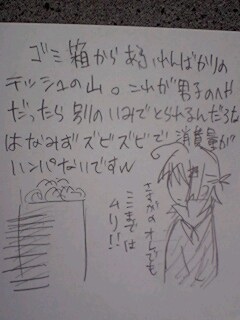 ゴミ箱からあふれんばかりの
テッシュの山。これが男子のへや
だったら別のいみでとられるんだろな
はなみずズビズビで消費量が
ハンパないですw
さすがのオレでも
ここまでは
ムリ!!